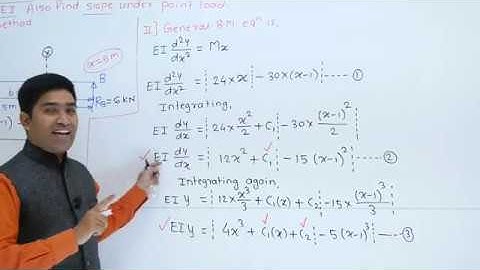 EI Also Find slope under point load.
method
x
x=5m
B
b
5m
RB=6kN
-1)
II] General B.M eqⁿ is,
EI d²y/dx² = Mx
EI d²y/dx² = | 24×x | - 30×(x-1) | ---- ①
Integrating,
EI dy/dx = | 24×x²/2 + C₁ | - 30×(x-1)²/2 |
✓ EI dy/dx = | 12x² + C₁ | - 15(x-1)² | ---- ②
Integrating again,
EI y = | 12×x³/3 + C₁(x) + C₂ | - 15×(x-1)³/3 |
✓ EI y = | 4x³ + C₁(x) + C₂ | - 5(x-1)³ | --- ③